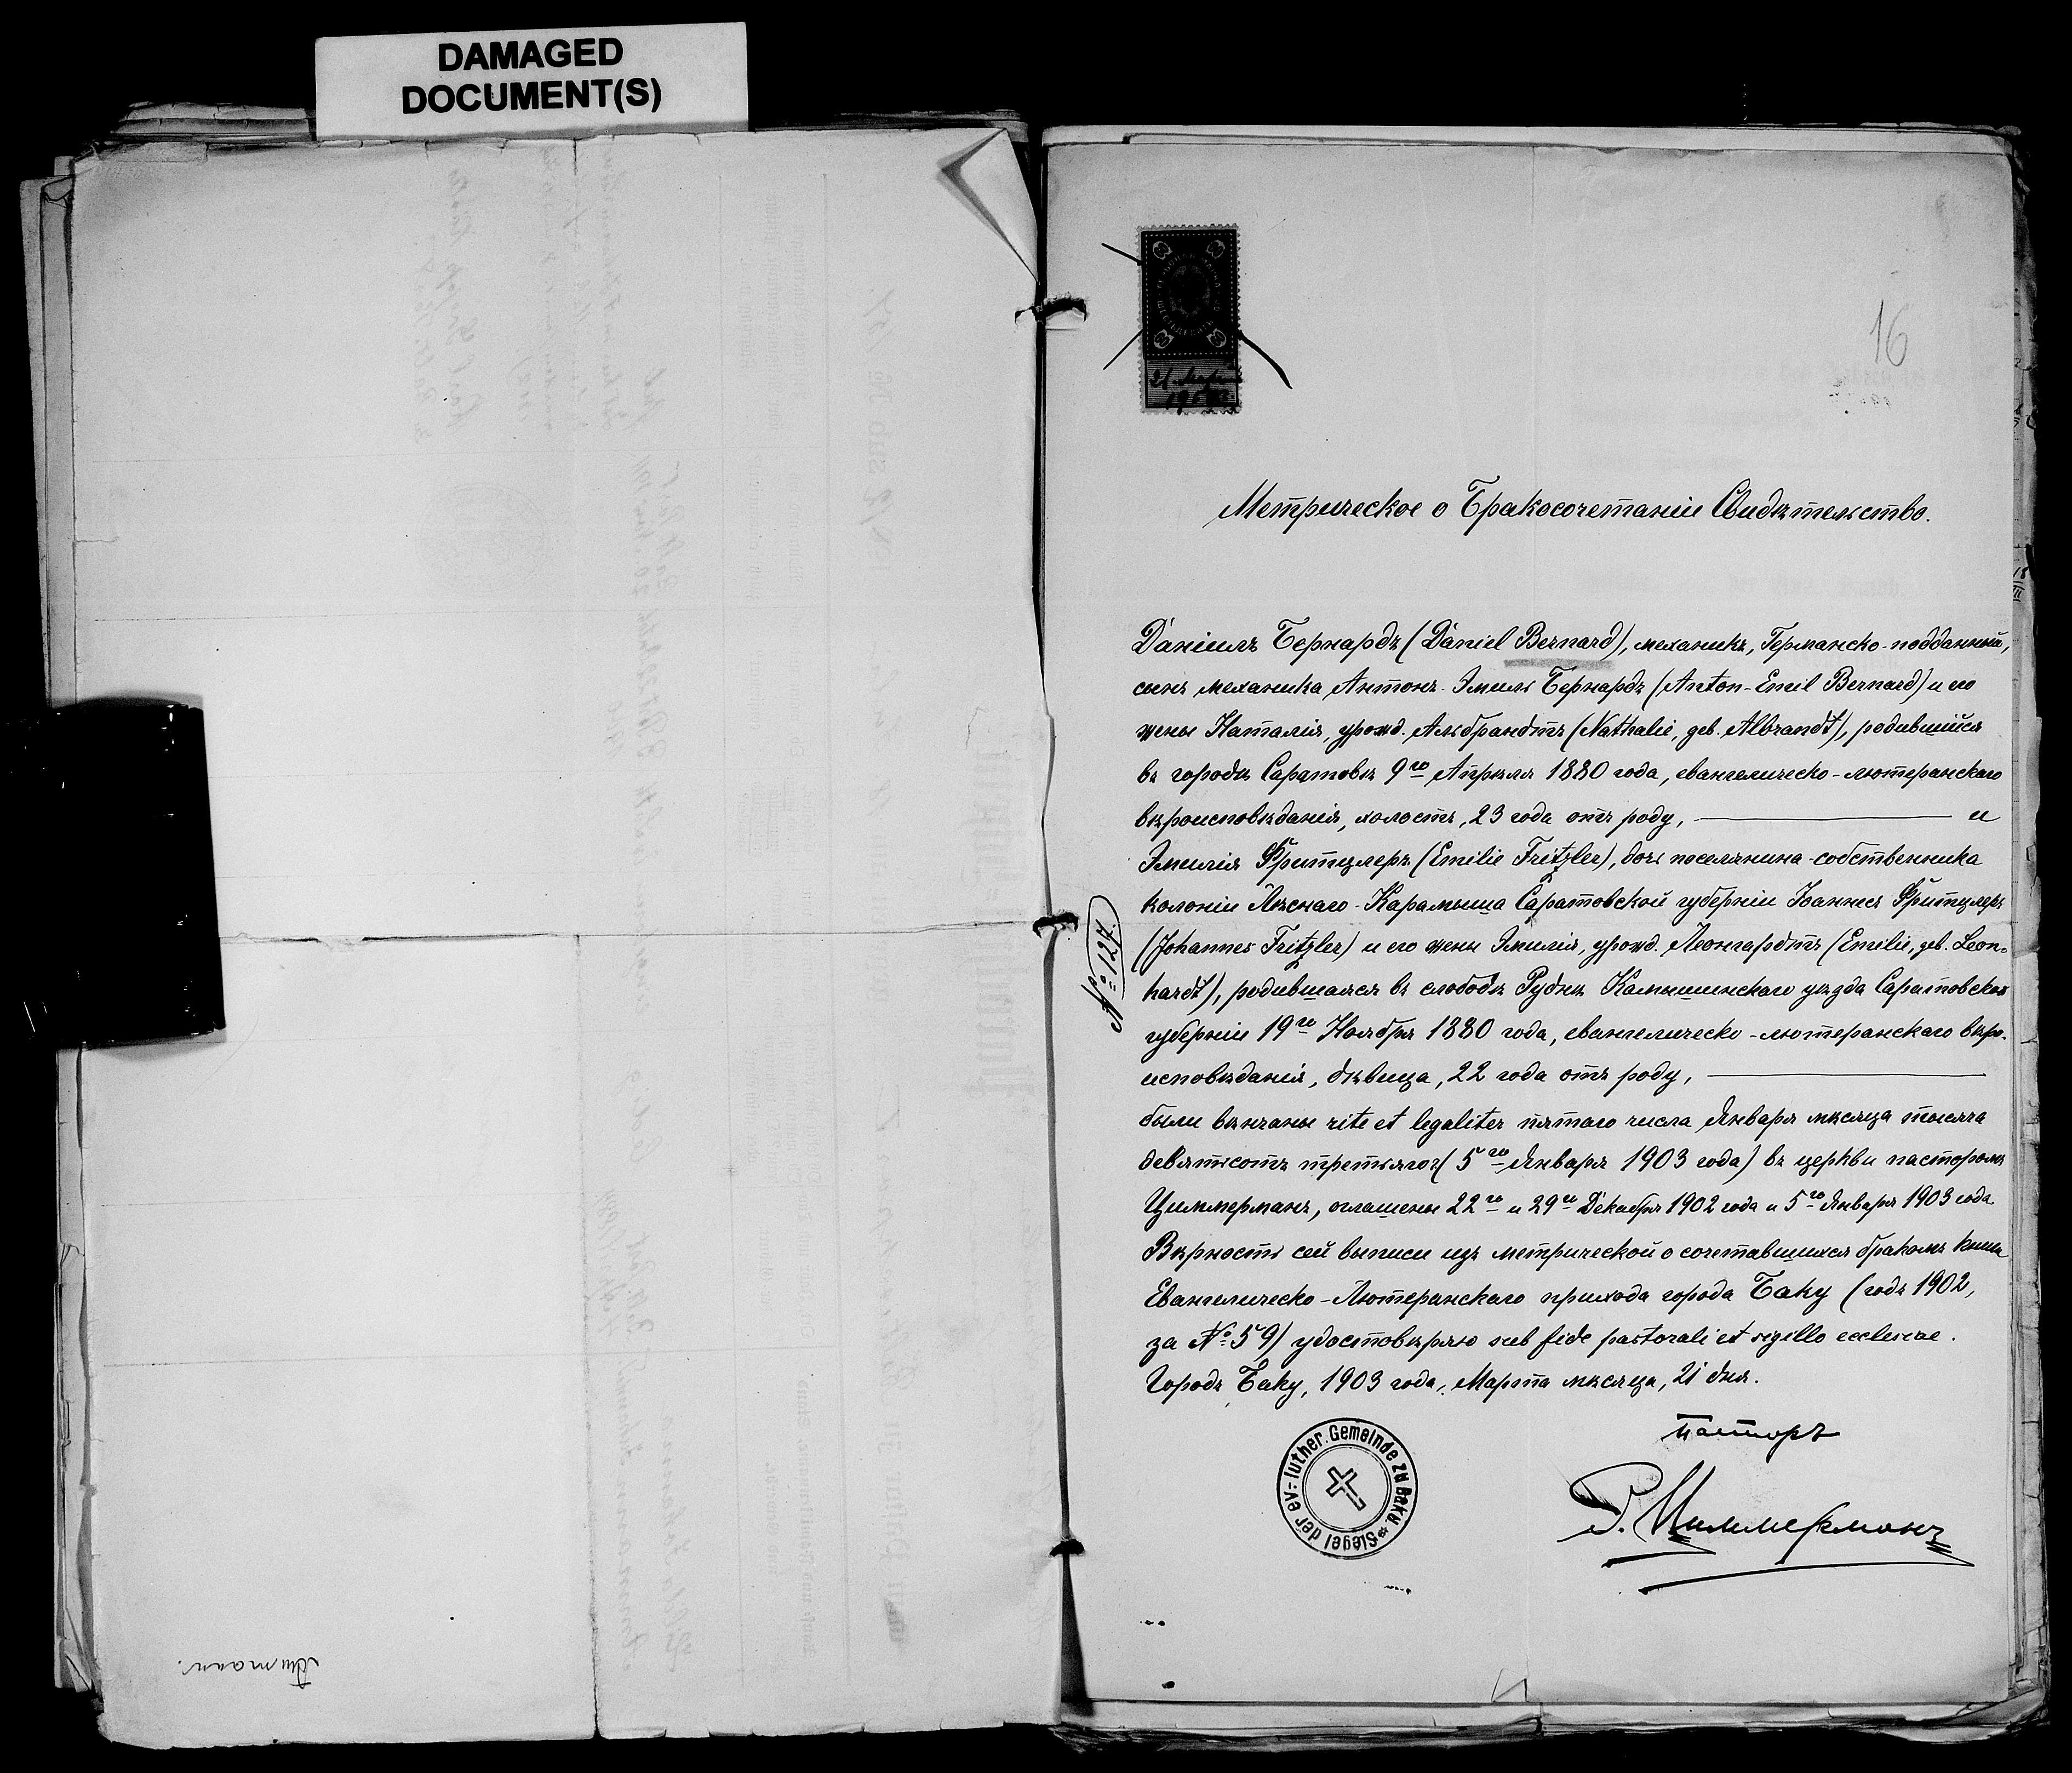 DAMAGED
DOCUMENT(S)
16
Метрическое о Бракосочетаніи Свидѣтельство.
Даніилъ Бернардъ (Daniel Bernard), механикъ, Германско-подданный,
сынъ механика Антонъ-Эмиль Бернардъ (Anton-Emil Bernard) и его
жены Наталія, урожд. Альбрандтъ (Nathalie, geb. Albrandt), родившійся
въ городѣ Саратовѣ 9го Апрѣля 1880 года, евангелическо-лютеранскаго
вѣроисповѣданія, холостъ, 23 года отъ роду, — и
Эмилія Фритцлеръ (Emilie Fritzler), дочь поселянина-собственника
колоніи Лѣснаго-Карамыша Саратовской губерніи Іоаннесъ Фритцлеръ
(Johannes Fritzler) и его жены Эмилія, урожд. Леонгардтъ (Emilie, geb. Leon-
hardt), родившаяся въ слободѣ Руднѣ Камышинскаго уѣзда Саратовской
губерніи 19го Ноября 1880 года, евангелическо-лютеранскаго вѣро-
исповѣданія, дѣвица, 22 года отъ роду, —
были вѣнчаны rite et legaliter пятаго числа Января мѣсяца тысяча
девятьсотъ третьяго (5го Января 1903 года) въ церкви пасторомъ
Циммерманъ, оглашены 22го и 29го Декабря 1902 года и 5го Января 1903 года.
Вѣрность сей выписи изъ метрической о сочетавшихся бракомъ книги
Евангелическо-Лютеранскаго прихода города Баку (годъ 1902,
за №59) удостовѣряю sub fide pastorali et sigillo ecclesiae.
Городъ Баку, 1903 года, Марта мѣсяца, 21 дня.
№127.
Пасторъ
П. Циммерманъ
Siegel der ev.-luther. Gemeinde zu Baku